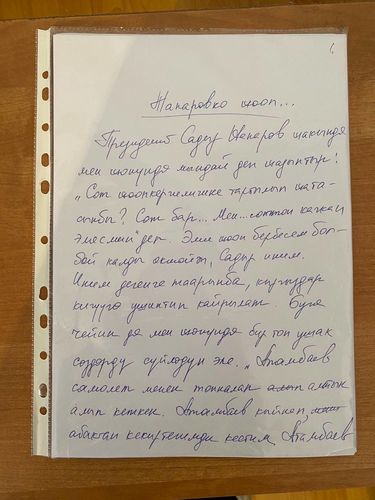 1
Жапаровко жооп...
Президент Садыр Жапаров жакында
мен жөнүндө мындай деп жазыптыр:
"Сот жоопкерчилигине тартылып жата-
сыңбы? Сот бар... Мен... соттон качкан
эмесмин" деп. Эми жооп бербесем бол-
бой калды окшойт, Садыр иним.
Иним дегенге таарынба, кыргыздар
кичүүгө ушинтип кайрылат. Буга
чейин да мен жөнүндө бир топ ушак
сөздөрдү сүйлөдүң эле. "Атамбаев
самолет менен тонналап алтын
алып кеткен. Атамбаев кыйнап,
абактан кекиртегимди кестим, Атамбаев